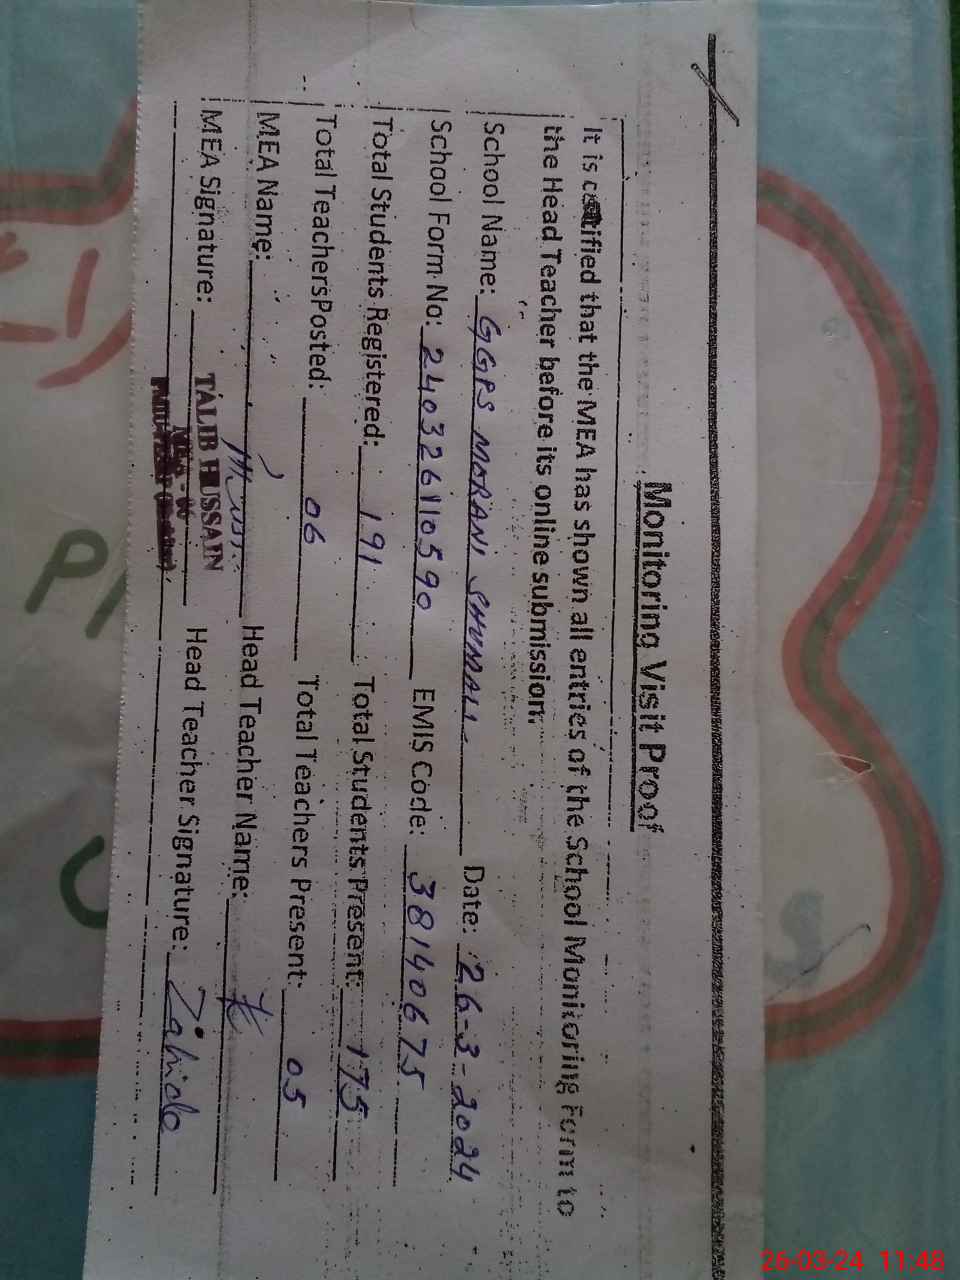 Monitoring Visit Proof
It is certified that the MEA has shown all entries of the School Monitoring Form to
the Head Teacher before its online submission.
School Name: GGPS MORANI SHUMALI Date: 26-3-2024
School Form No: 240326110590 EMIS Code: 38140675
Total Students Registered: 191 Total Students Present: 175
Total Teachers Posted: 06 Total Teachers Present: 05
MEA Name: Head Teacher Name:
MEA Signature: TALIB HUSSAIN Head Teacher Signature: Zahida
MEA - 06
26-03-24 11:48